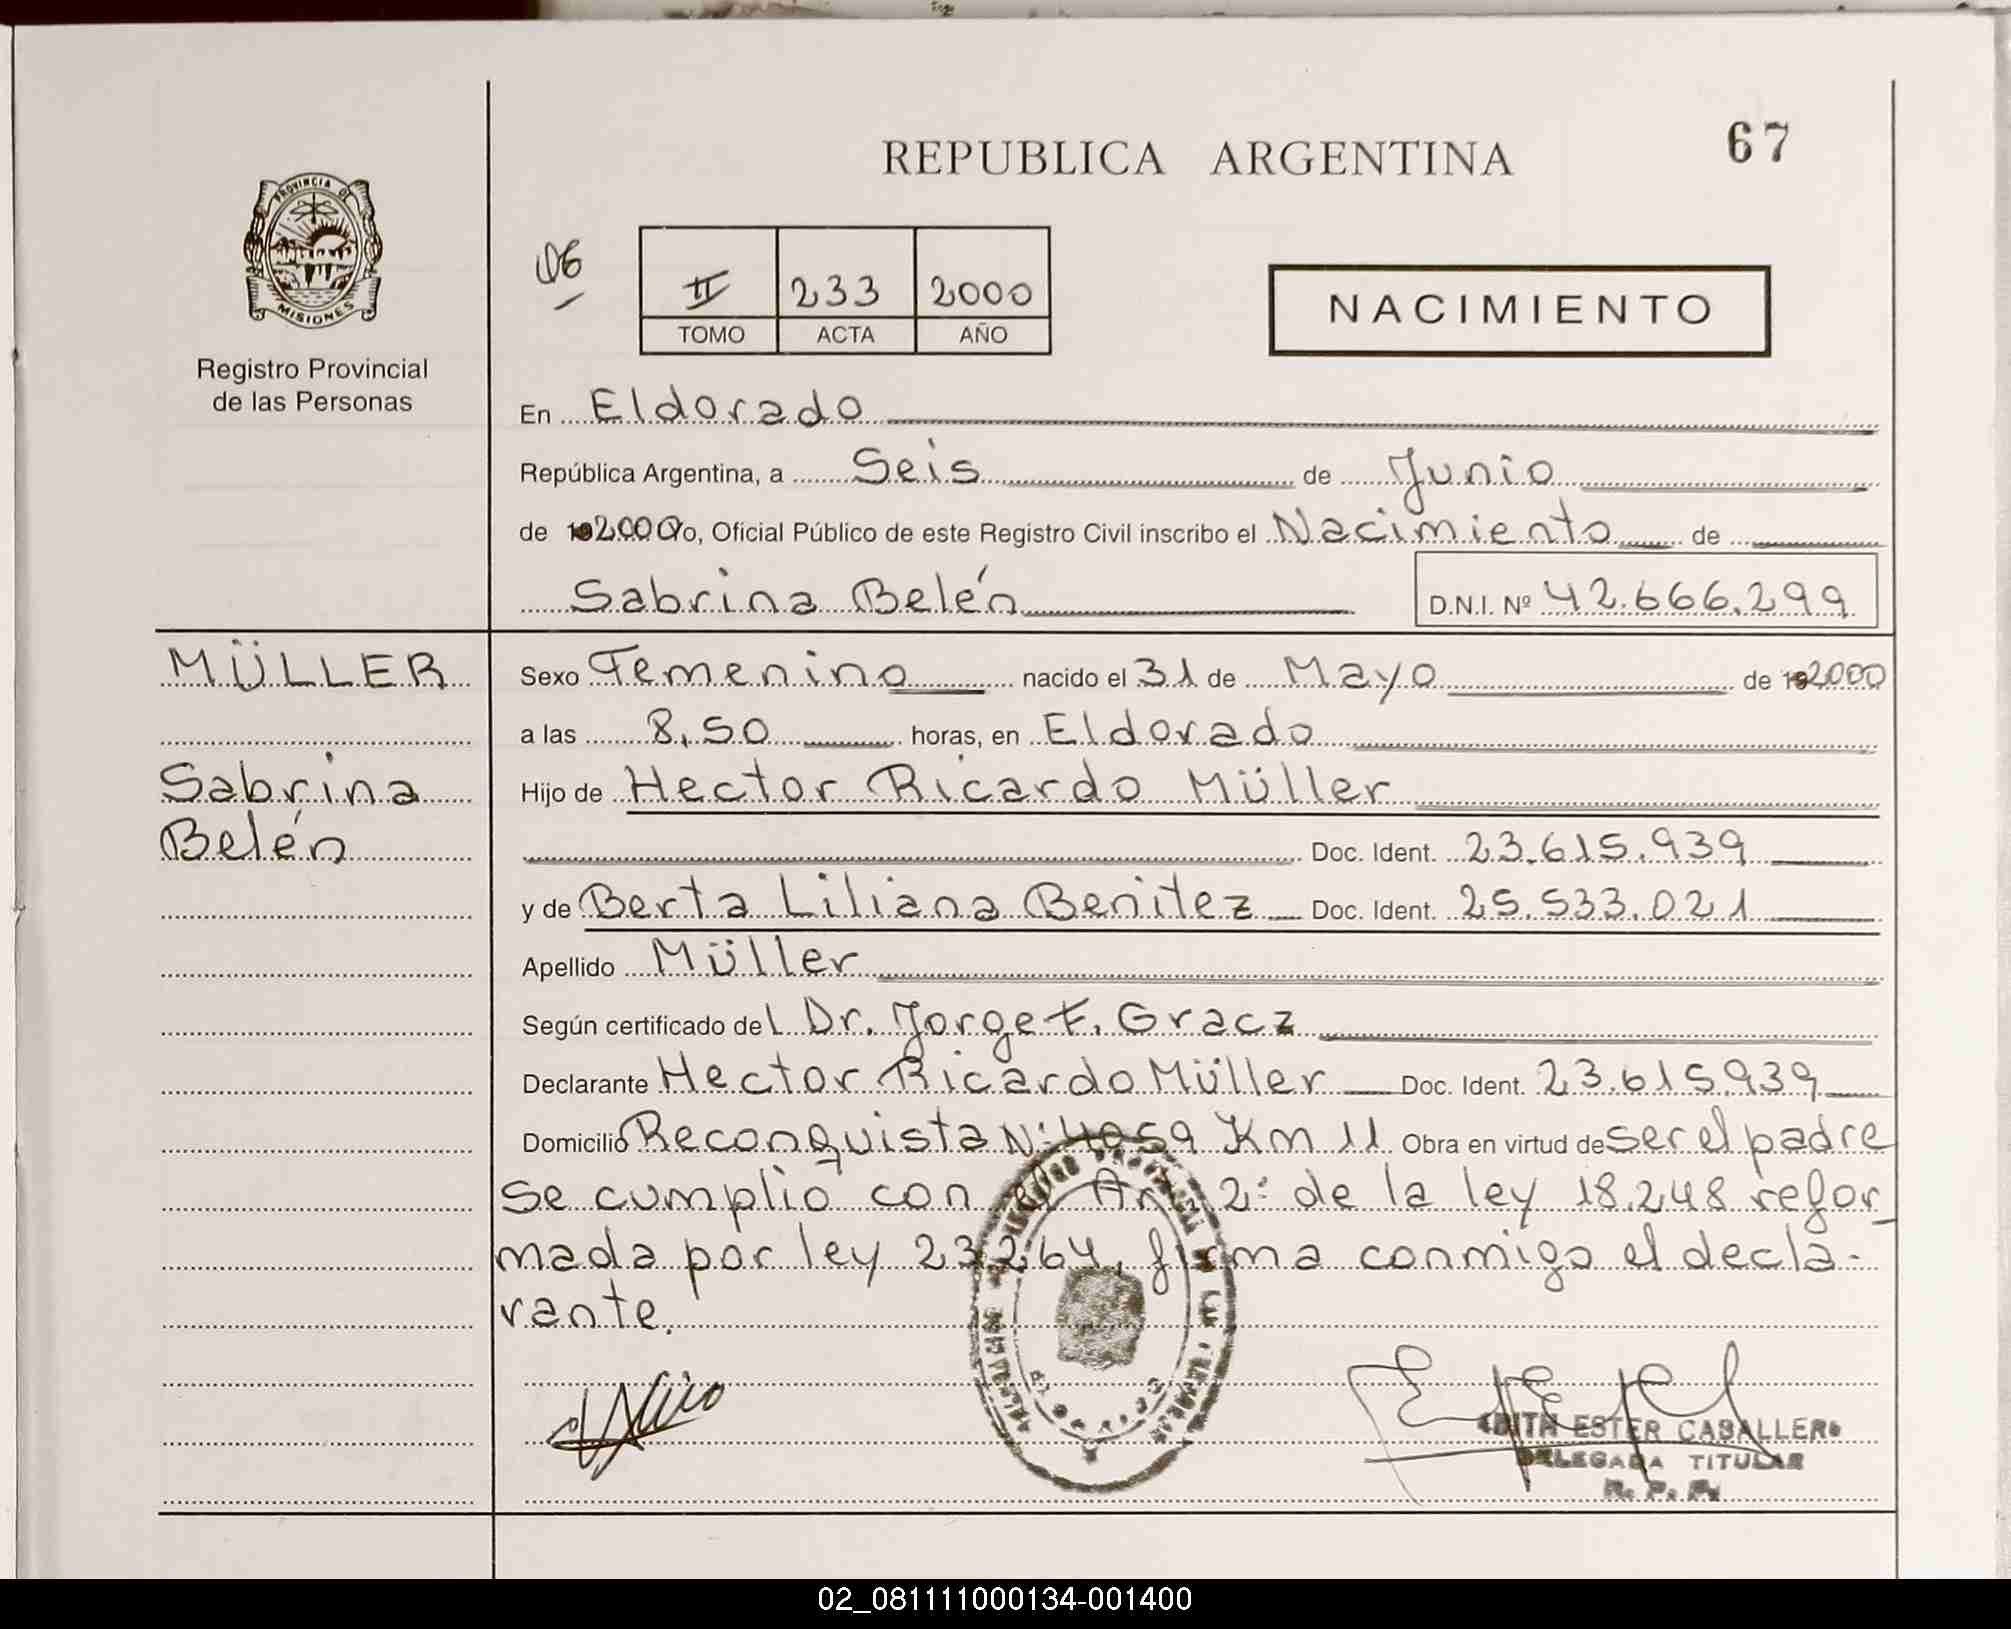 REPUBLICA ARGENTINA
67
PROVINCIA DE
MISIONES
Registro Provincial
de las Personas
06
II 233 2000
TOMO ACTA AÑO
NACIMIENTO
En Eldorado
República Argentina, a Seis de Junio
de 2000 Yo, Oficial Público de este Registro Civil inscribo el Nacimiento de
Sabrina Belén D.N.I. Nº 42.666.299
MÜLLER
Sabrina
Belén
Sexo Femenino nacido el 31 de Mayo de 2000
a las 8,50 horas, en Eldorado
Hijo de Hector Ricardo Müller
Doc. Ident. 23.615.939
y de Berta Liliana Benitez Doc. Ident. 25.533.021
Apellido Müller
Según certificado del Dr. Jorge F. Gracz
Declarante Hector Ricardo Müller Doc. Ident. 23.615.939
Domicilio Reconquista Nº 4059 Km 11 Obra en virtud de ser el padre
Se cumplió con el Art. 2º de la ley 18.248 refor_
mada por ley 23.264, firma conmigo el decla-
rante.
EDITH ESTER CABALLERO
DELEGADA TITULAR
R. P. P.
02_081111000134-001400